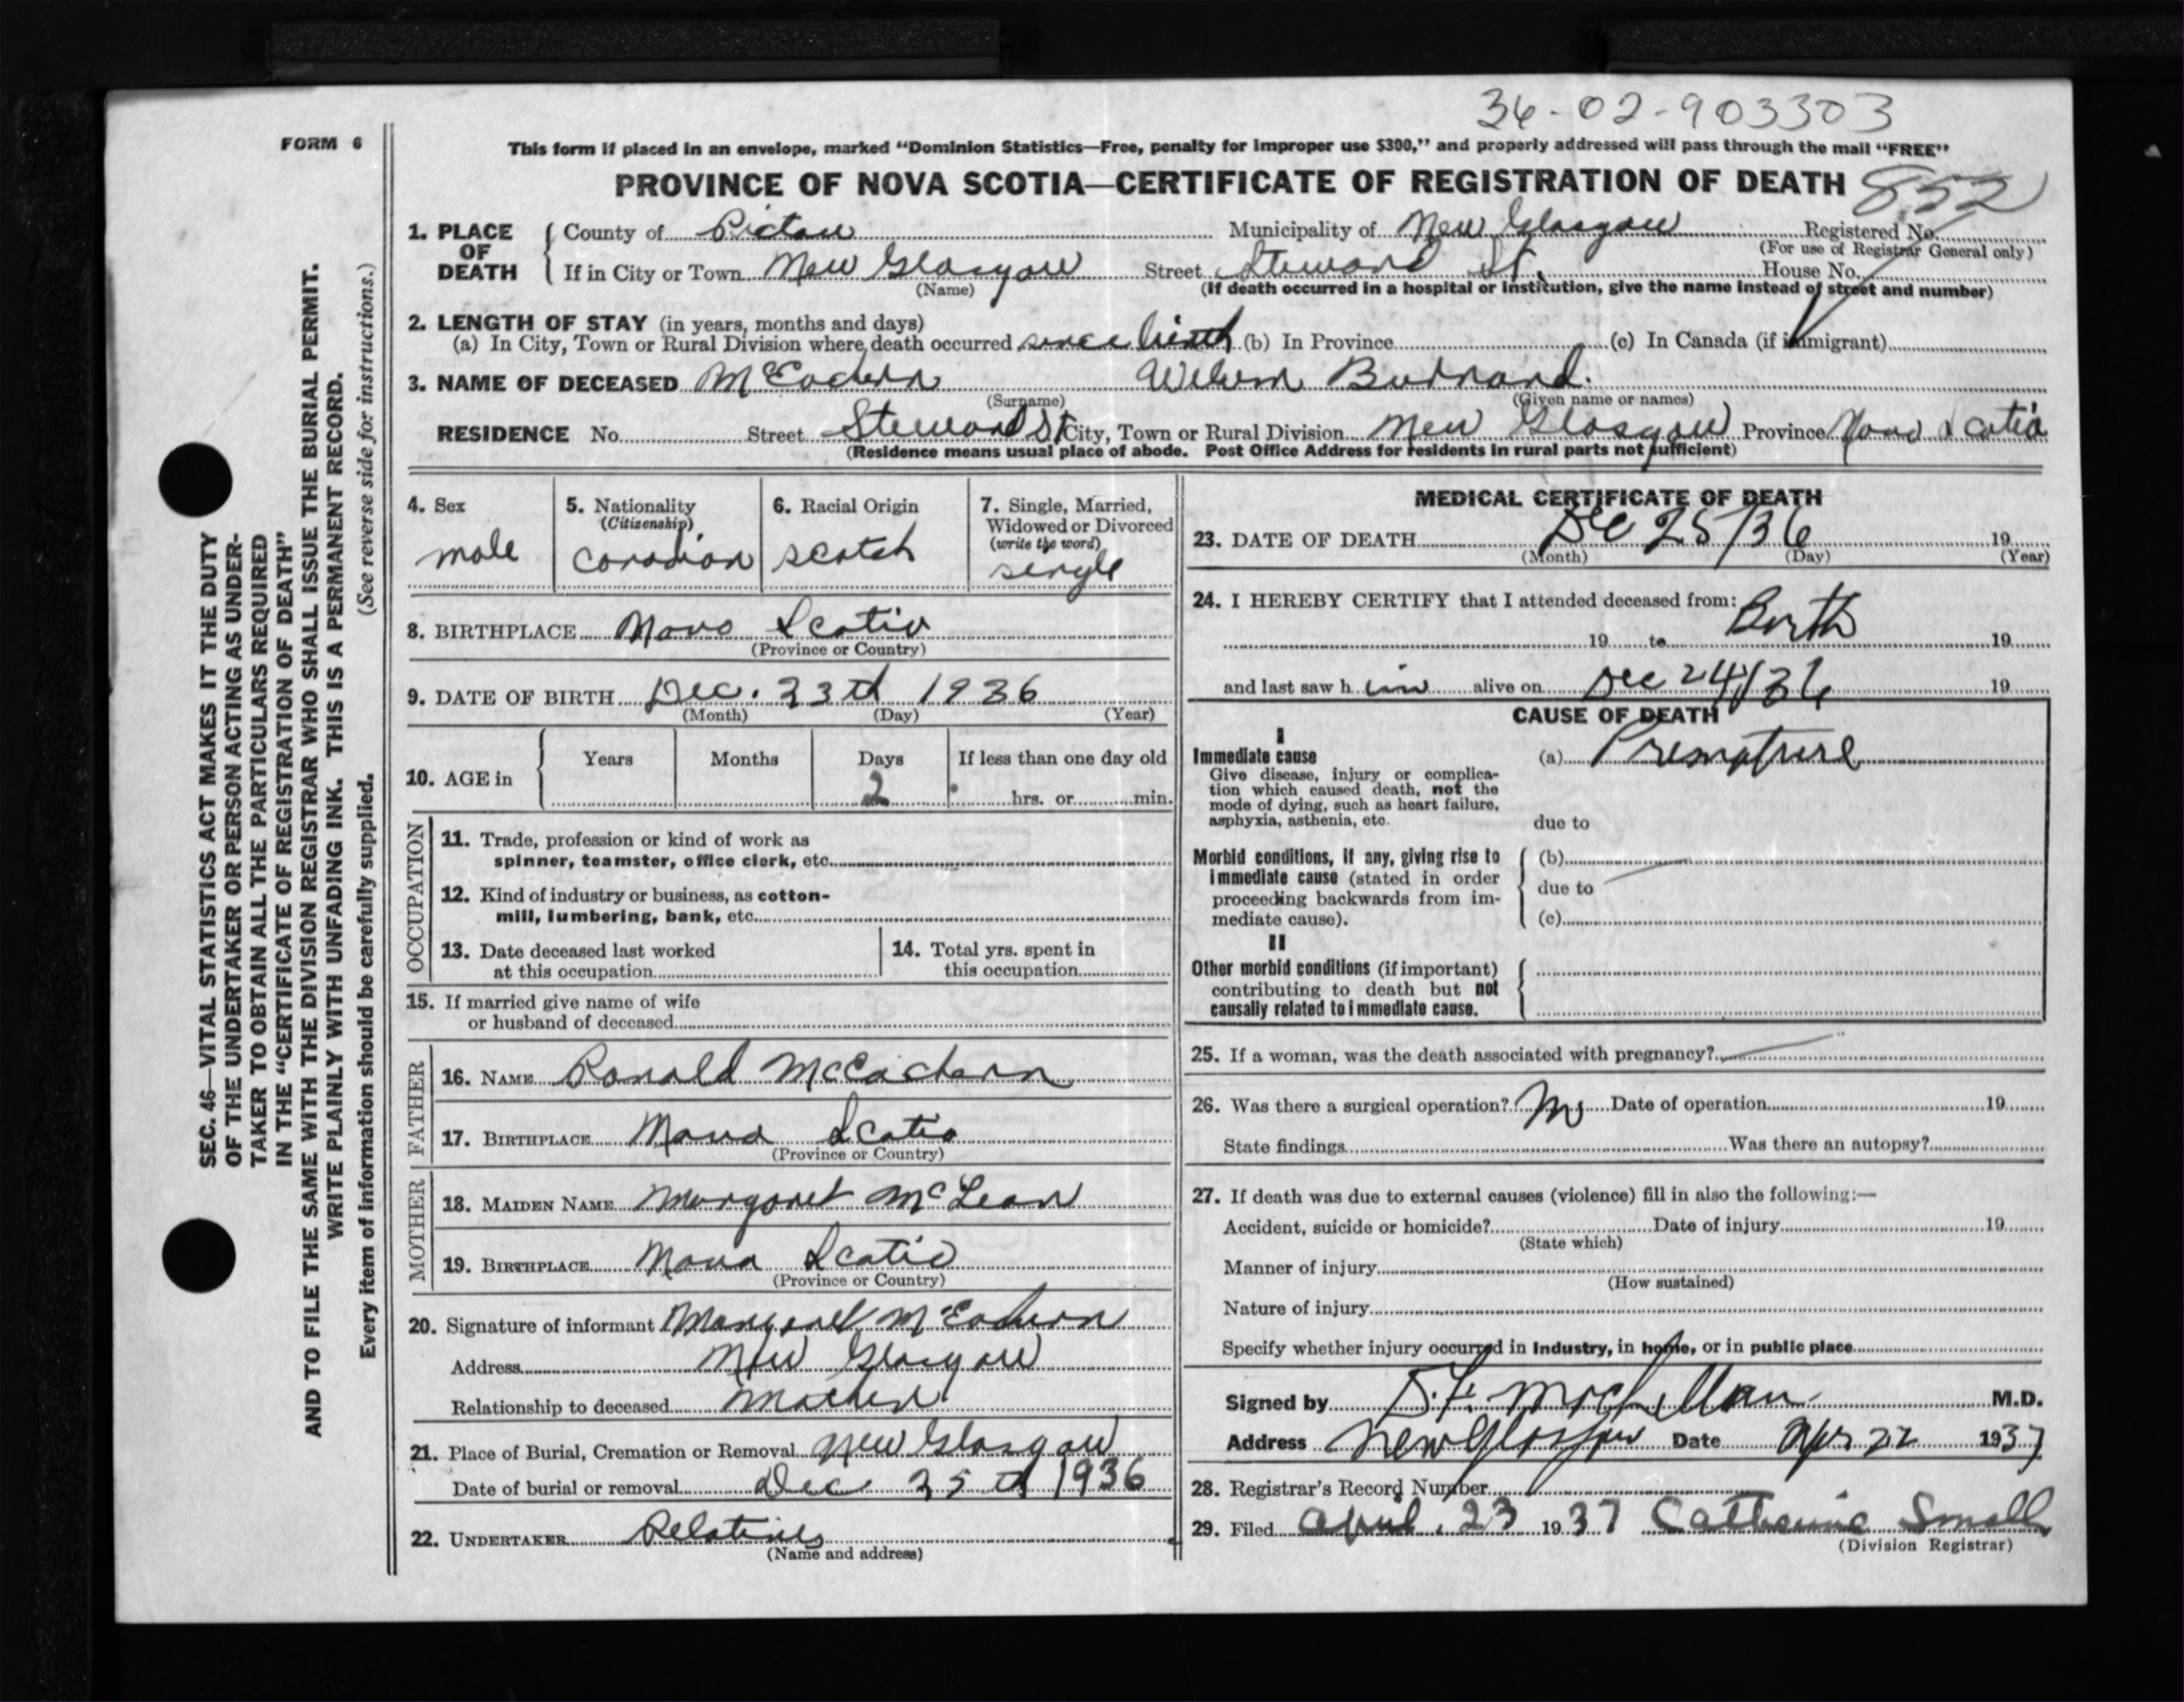 36-02-903303
FORM 6
This form if placed in an envelope, marked "Dominion Statistics—Free, penalty for improper use $300," and properly addressed will pass through the mail "FREE"
PROVINCE OF NOVA SCOTIA—CERTIFICATE OF REGISTRATION OF DEATH 852
1. PLACE OF DEATH { County of Pictou Municipality of New Glasgow Registered No.
(For use of Registrar General only)
If in City or Town New Glasgow Street Steward St. House No.
(Name) (If death occurred in a hospital or institution, give the name instead of street and number)
2. LENGTH OF STAY (in years, months and days)
(a) In City, Town or Rural Division where death occurred since birth (b) In Province (c) In Canada (if immigrant)
3. NAME OF DECEASED McEachern Burnard.
(Surname) (Given name or names)
RESIDENCE No. Street Steward St City, Town or Rural Division New Glasgow Province Nova Scotia
(Residence means usual place of abode. Post Office Address for residents in rural parts not sufficient)
4. Sex
male
5. Nationality
(Citizenship)
Canadian
6. Racial Origin
Scotch
7. Single, Married,
Widowed or Divorced
(write the word)
single
8. BIRTHPLACE Nova Scotia
(Province or Country)
9. DATE OF BIRTH Dec. 23th 1936
(Month) (Day) (Year)
10. AGE in { Years Months Days If less than one day old
2 hrs. or min.
OCCUPATION
11. Trade, profession or kind of work as
spinner, teamster, office clerk, etc.
12. Kind of industry or business, as cotton-
mill, lumbering, bank, etc.
13. Date deceased last worked
at this occupation
14. Total yrs. spent in
this occupation
15. If married give name of wife
or husband of deceased
FATHER
16. NAME Ronald McEachern
17. BIRTHPLACE Nova Scotia
(Province or Country)
MOTHER
18. MAIDEN NAME Margaret McLean
19. BIRTHPLACE Nova Scotia
(Province or Country)
20. Signature of informant Margaret McEachern
Address New Glasgow
Relationship to deceased Mother
21. Place of Burial, Cremation or Removal New Glasgow
Date of burial or removal Dec 25th 1936
22. UNDERTAKER Relatives
(Name and address)
MEDICAL CERTIFICATE OF DEATH
23. DATE OF DEATH Dec 25/36 19
(Month) (Day) (Year)
24. I HEREBY CERTIFY that I attended deceased from:
19 to Birth 19
and last saw h im alive on Dec 24/36 19
CAUSE OF DEATH
I
Immediate cause (a) Premature
Give disease, injury or complica-
tion which caused death, not the
mode of dying, such as heart failure,
asphyxia, asthenia, etc.
due to
Morbid conditions, if any, giving rise to
immediate cause (stated in order
proceeding backwards from im-
mediate cause).
(b)
due to
(c)
II
Other morbid conditions (if important)
contributing to death but not
causally related to immediate cause.
25. If a woman, was the death associated with pregnancy?
26. Was there a surgical operation? No Date of operation 19
State findings Was there an autopsy?
27. If death was due to external causes (violence) fill in also the following:—
Accident, suicide or homicide? Date of injury 19
(State which)
Manner of injury
(How sustained)
Nature of injury
Specify whether injury occurred in industry, in home, or in public place
Signed by M.D.
Address New Glasgow Date Apr 22 1937
28. Registrar's Record Number
29. Filed April. 23 1937 Catherine Small
(Division Registrar)
SEC. 46—VITAL STATISTICS ACT MAKES IT THE DUTY
OF THE UNDERTAKER OR PERSON ACTING AS UNDER-
TAKER TO OBTAIN ALL THE PARTICULARS REQUIRED
IN THE "CERTIFICATE OF REGISTRATION OF DEATH"
AND TO FILE THE SAME WITH THE DIVISION REGISTRAR WHO SHALL ISSUE THE BURIAL PERMIT.
WRITE PLAINLY WITH UNFADING INK. THIS IS A PERMANENT RECORD.
Every item of information should be carefully supplied. (See reverse side for instructions.)